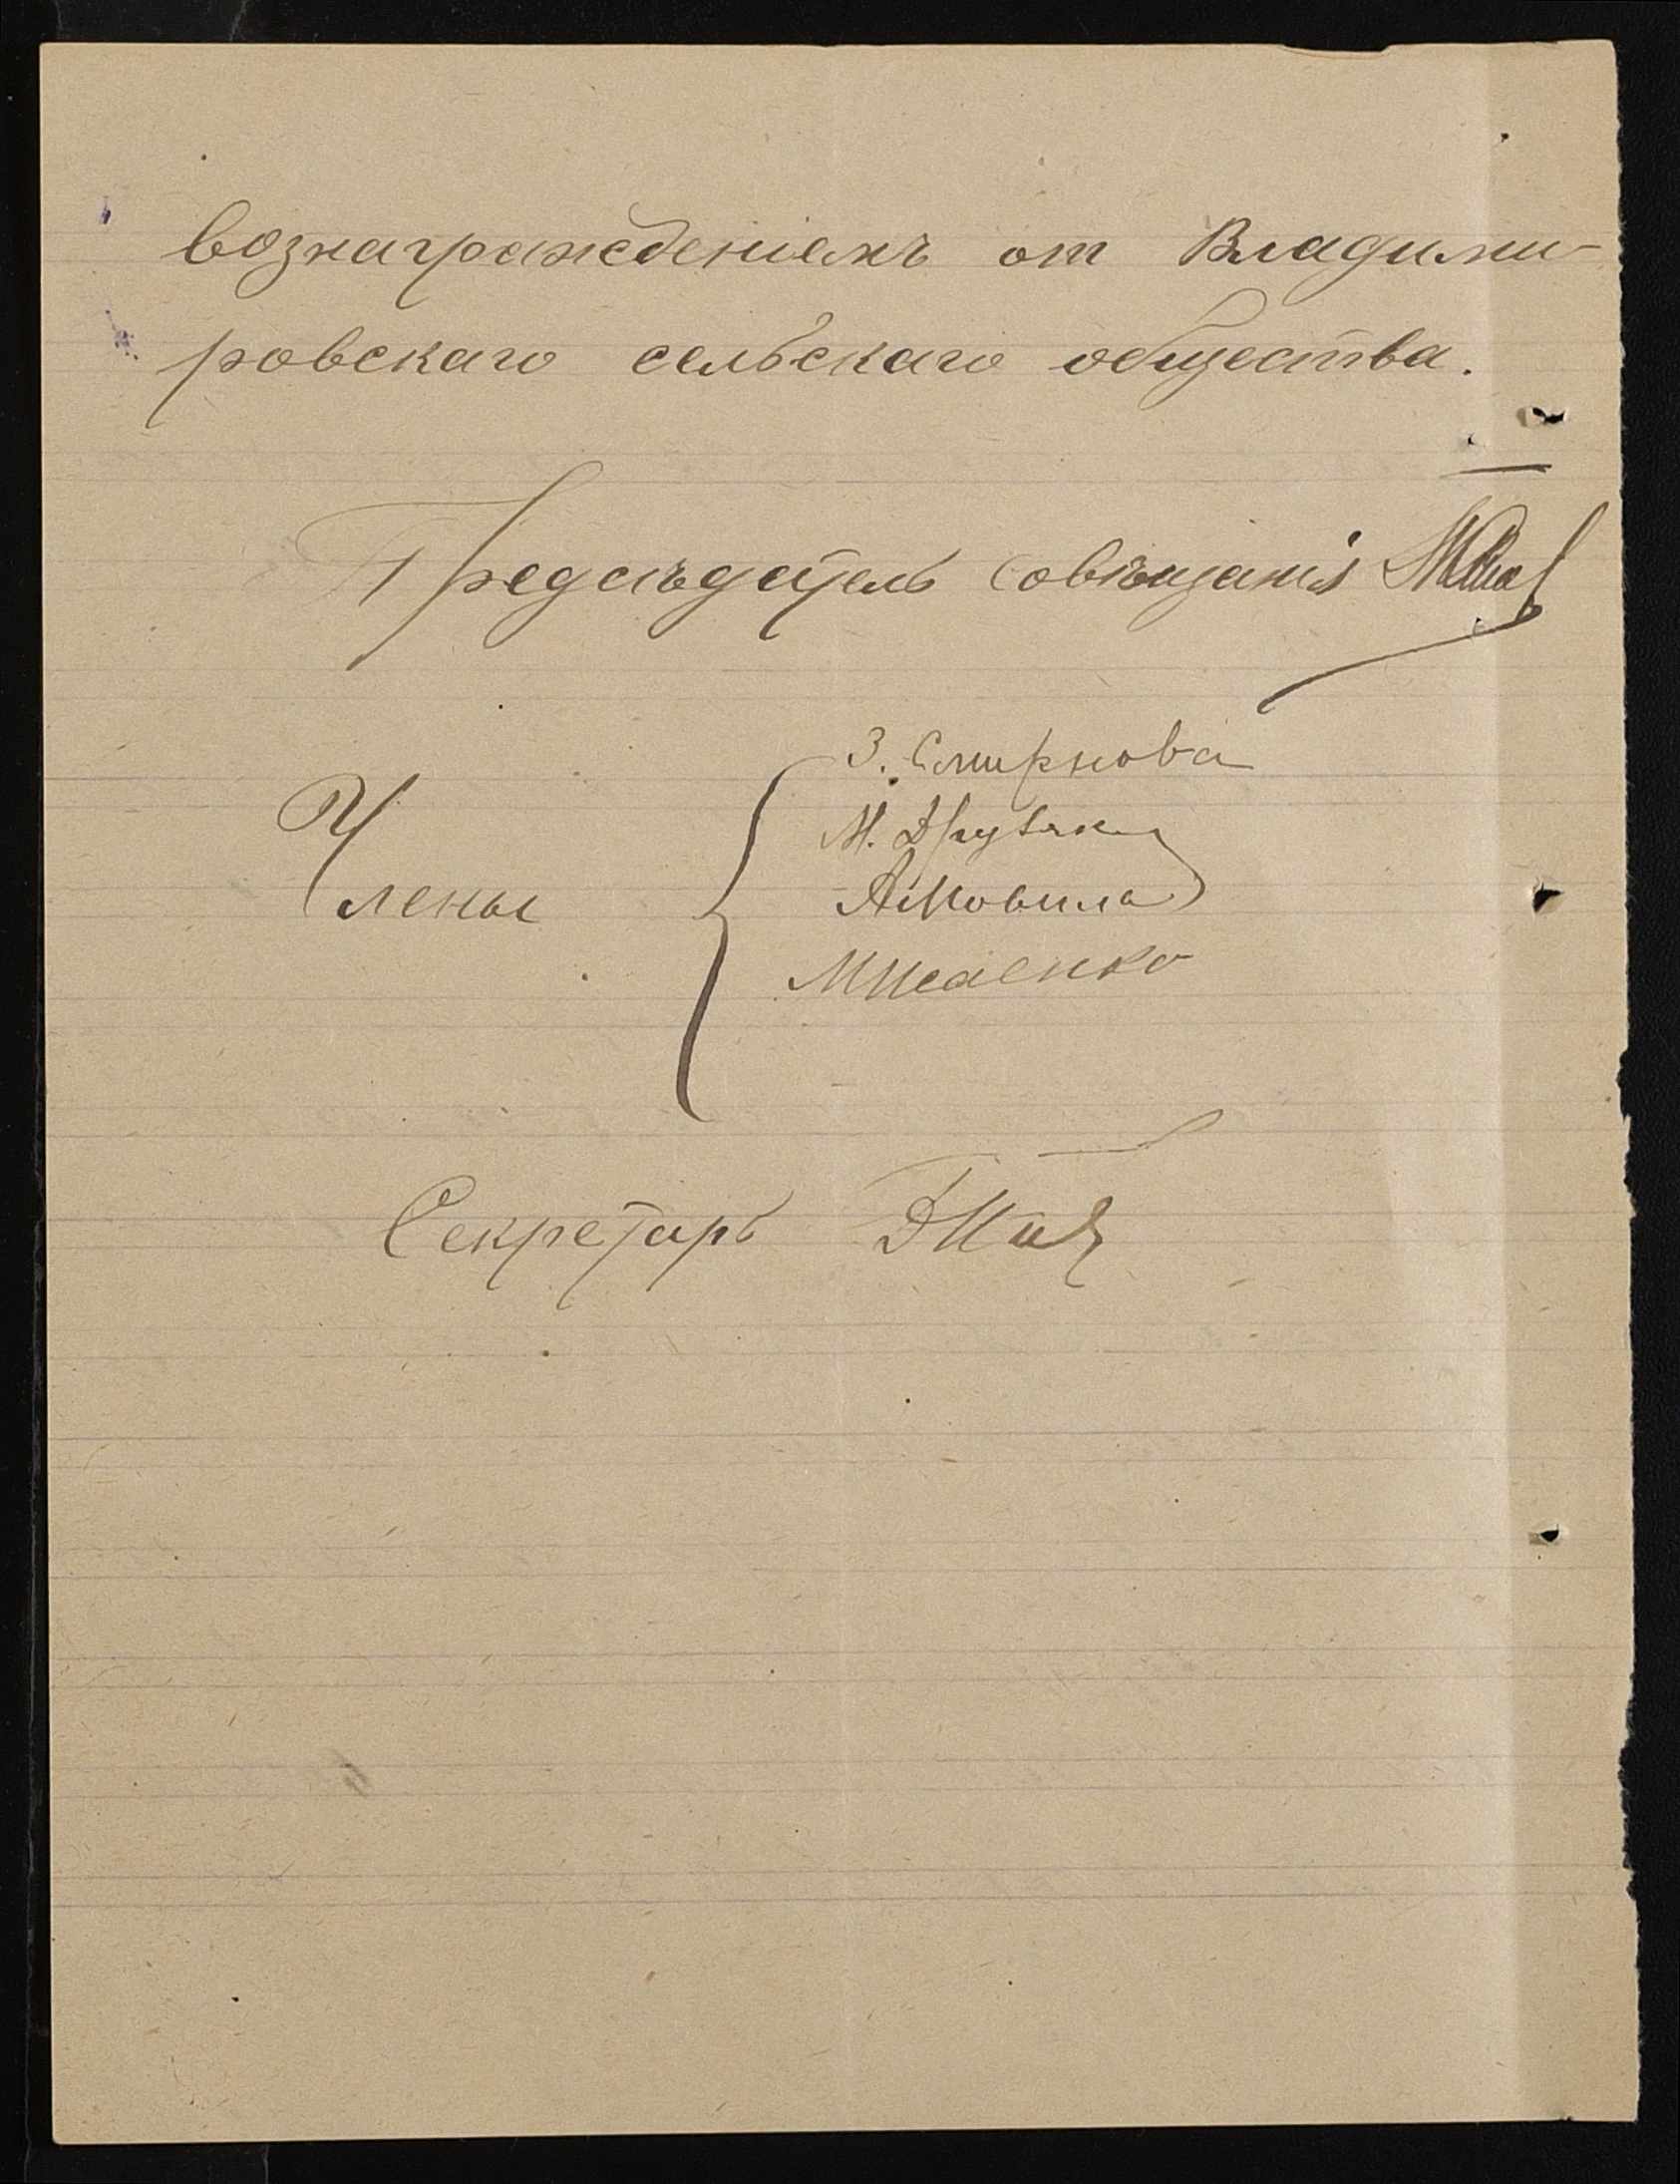 вознагражденіемъ от Владими-
ровскаго сельскаго общества.
Предсѣдатель Совѣщанія
З. Смирнова
М.
Члены
А. Мовила
М Исаенко
Секретарь